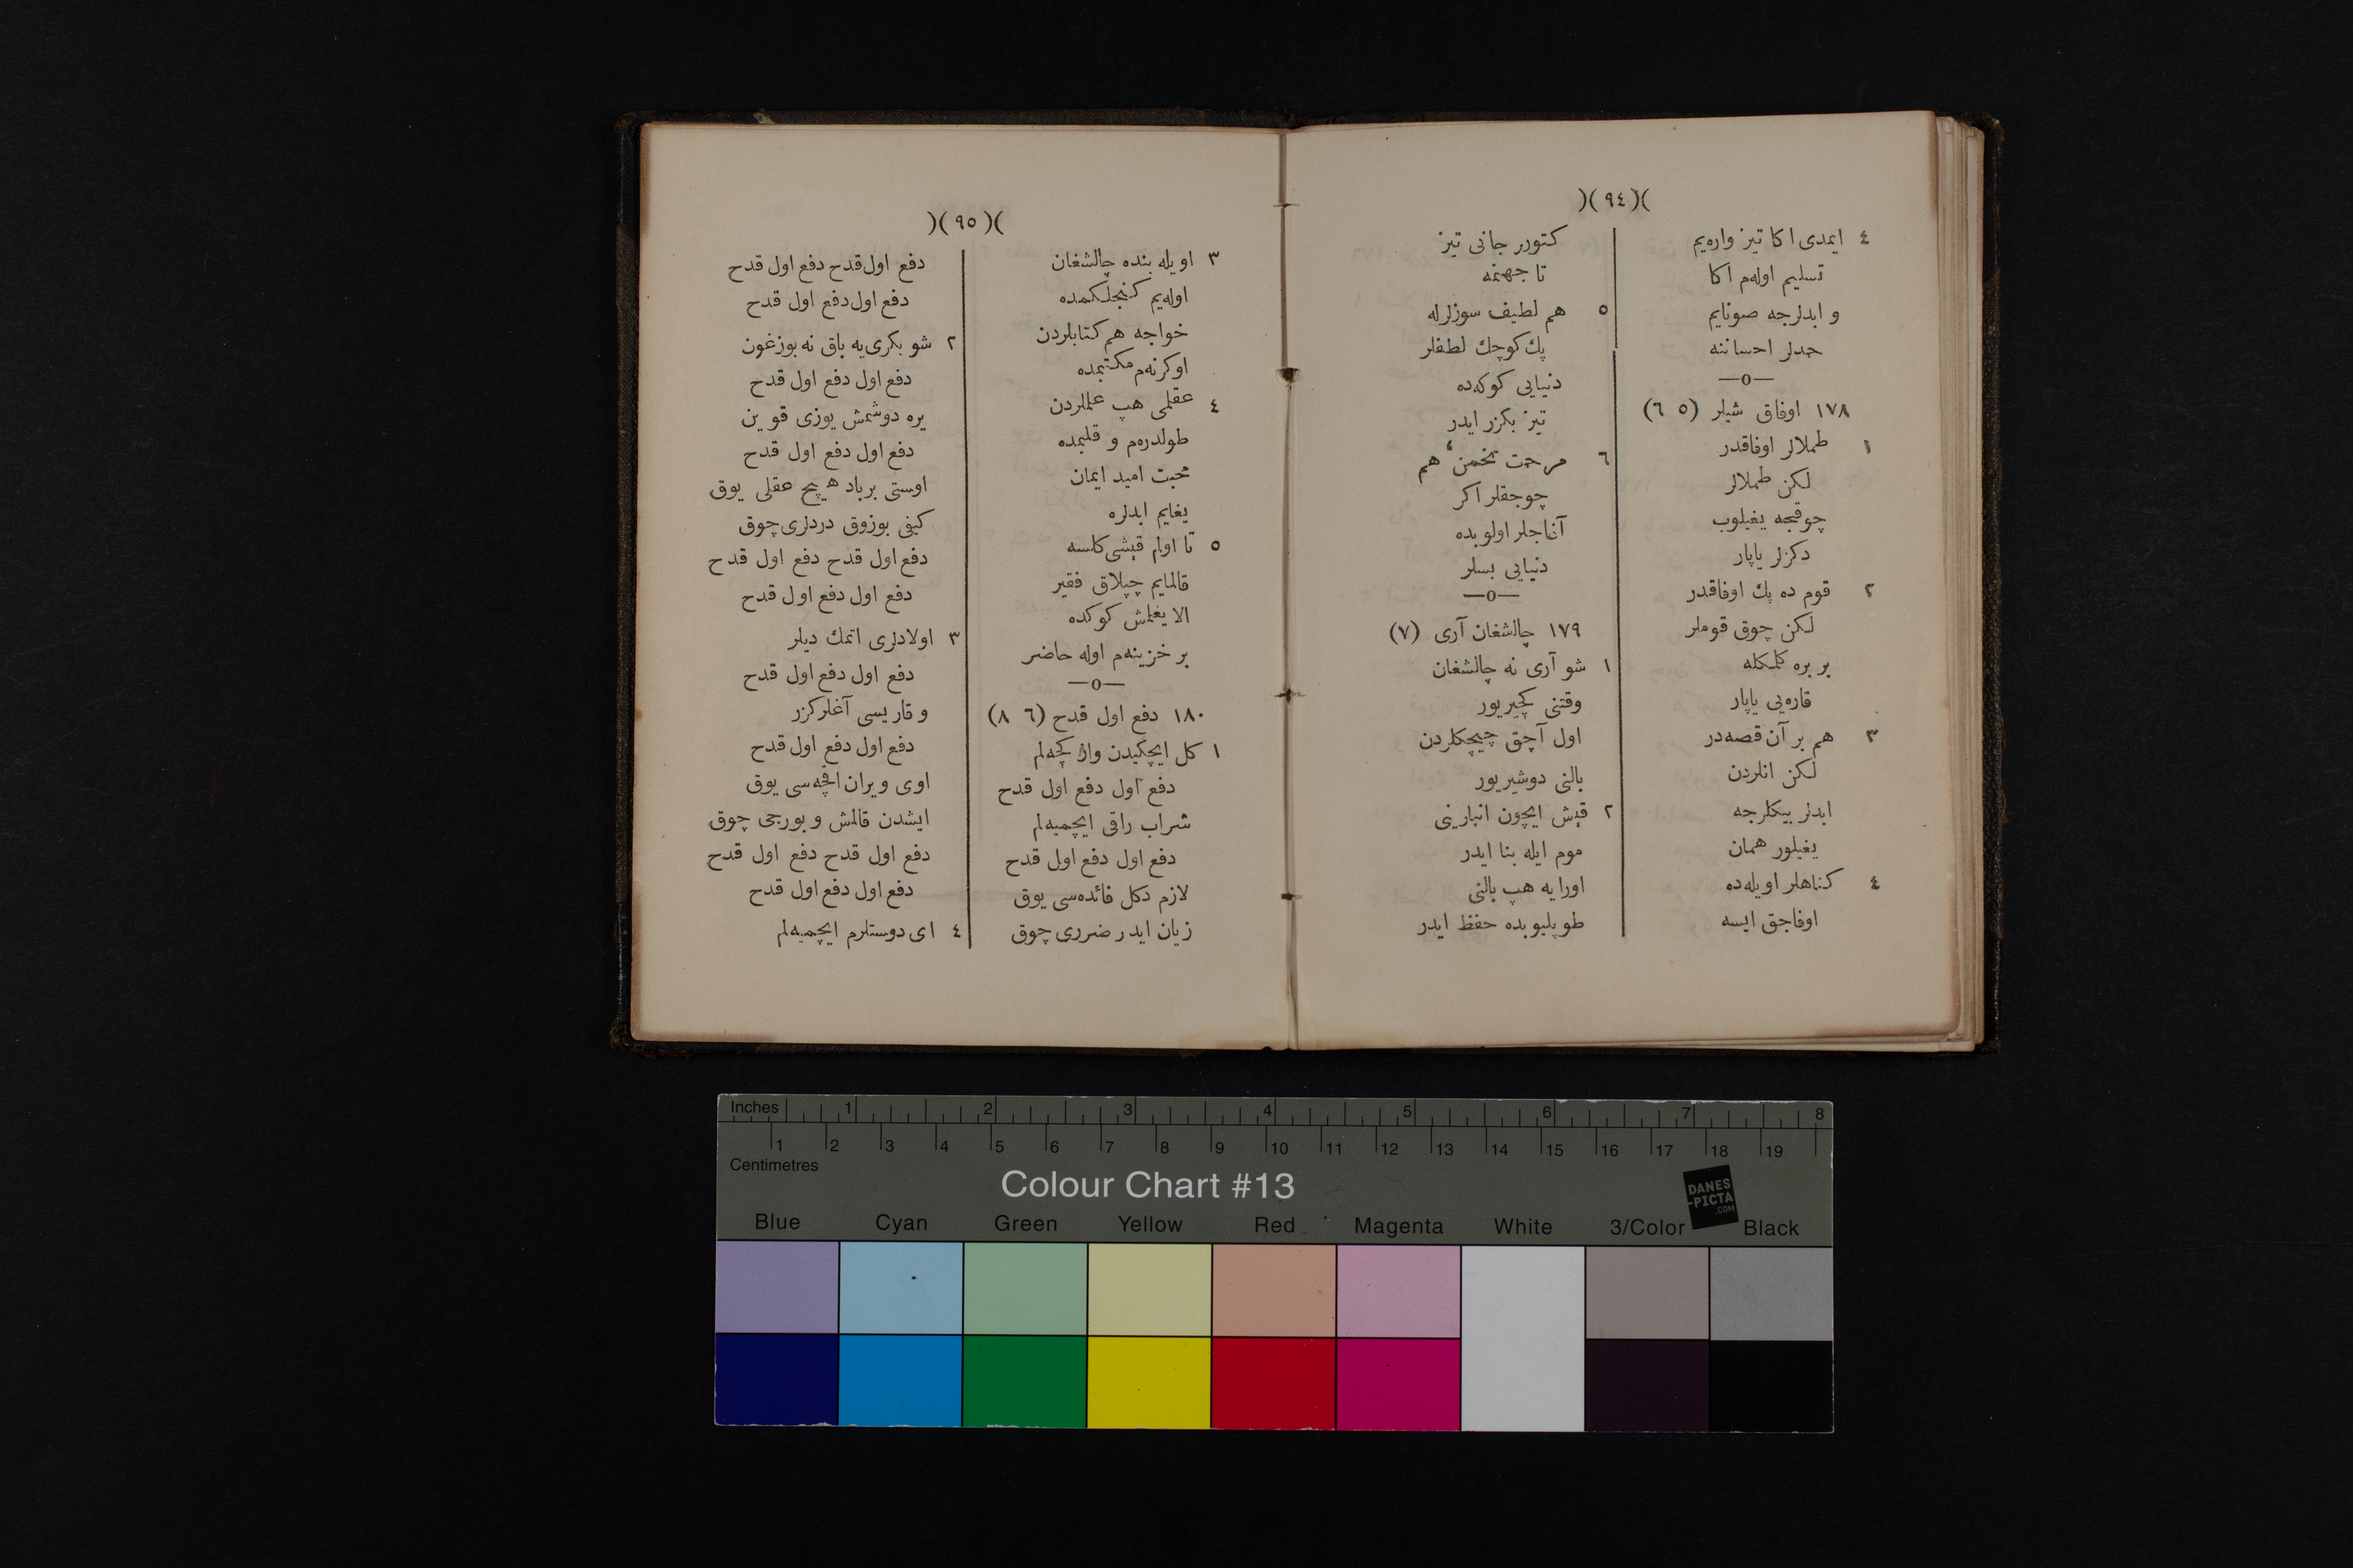 )( ٩٤ )(
٤ ايمدى اكا تيز واره‌يم
تسليم اوله‌م اكا
و ابدلرجه صونايم
حمدلر احساننه
—o—
١٧٨ اوفاق شيلر (٥ ٦)
١ طملالر اوفاقدر
لكن طملالر
چوقجه يغيلوب
دكزلر ياپار
٢ قوم ده پك اوفاقدر
لكن چوق قوملر
بر بره كلمكله
قاره‌يى ياپار
٣ هم بر آن قصه‌در
لكن انلردن
ابدلر بيكلرجه
يغيلور همان
٤ كناهلر اويله‌ده
اوفاجق ايسه
كتورر جانى تيز
تا جهنمه
٥ هم لطيف سوزلرله
پك كوچك لطفلر
دنيايى كوكه‌ده
تيز بكزر ايدر
٦ مرحمت تخمن، هم
چوجقلر اكر
آغاجلر اولوبده
دنيايى بسلر
—o—
١٧٩ چالشغان آرى (٧)
١ شو آرى نه چالشغان
وقتنى كچيريور
اول آچق چيچكلردن
بالنى دوشيريور
٢ قيش ايچون انبارينى
موم ايله بنا ايدر
اورايه هپ بالنى
طوپليوبده حفظ ايدر
)( ٩٥ )(
٣ اويله بنده چالشغان
اوله‌يم كنجلكمده
خواجه هم كتابلردن
اوكرنه‌م مكتبمده
٤ عقلمى هپ علملردن
طولدره‌م و قلبمده
محبت اميد ايمان
يغايم ابدلره
٥ تا اولم قيشى كلسه
قالمايم چپلاق فقير
الا يغلمش كوكده
بر خزينه‌م اوله حاضر
—o—
١٨٠ دفع اول قدح (٦ ٨)
١ كل ايچكيدن واز كچه‌لم
دفع اول دفع اول قدح
شراب راقى ايچميه‌لم
دفع اول دفع اول قدح
لازم دكل فائده‌سى يوق
زيان ايدر ضررى چوق
دفع اول قدح دفع اول قدح
دفع اول دفع اول قدح
٢ شو بكرى‌يه باق نه بوزغون
دفع اول دفع اول قدح
يره دوشمش يوزى قوين
دفع اول دفع اول قدح
اوستى برباد هيچ عقلى يوق
كيفى بوزوق دردلرى چوق
دفع اول قدح دفع اول قدح
دفع اول دفع اول قدح
٣ اولادلرى اتمك ديلر
دفع اول دفع اول قدح
و قاريسى آغلر كزر
دفع اول دفع اول قدح
اوى ويران اقچه‌سى يوق
ايشدن قالمش و بورجى چوق
دفع اول قدح دفع اول قدح
دفع اول دفع اول قدح
٤ اى دوستلرم ايچميه‌لم
Inches 1 2 3 4 5 6 7 8
1 2 3 4 5 6 7 8 9 10 11 12 13 14 15 16 17 18 19
Centimetres
Colour Chart #13
DANES
-PICTA
.COM
Blue Cyan Green Yellow Red Magenta White 3/Color Black